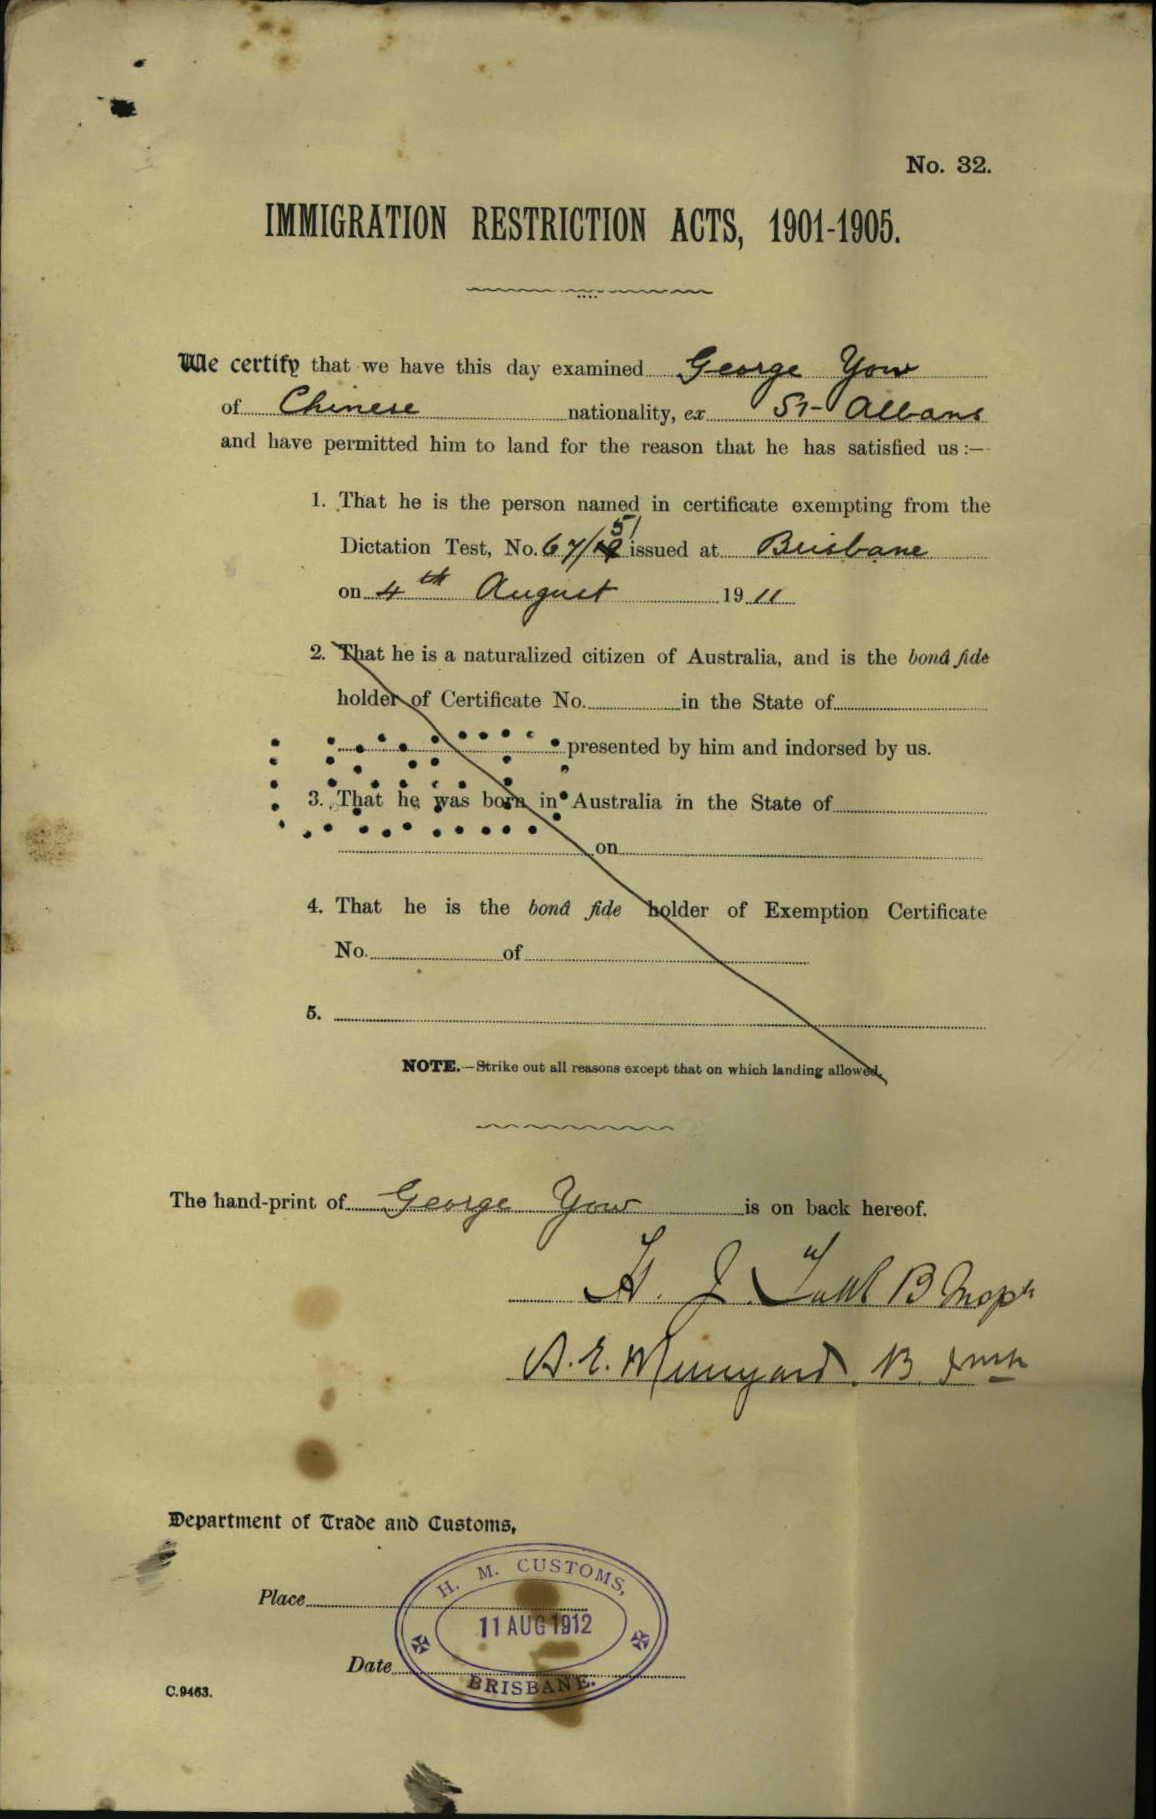 No. 32.
IMMIGRATION RESTRICTION ACTS, 1901-1905.
We certify that we have this day examined George Yow
of Chinese nationality, ex St Albans
and have permitted him to land for the reason that he has satisfied us :—
1. That he is the person named in certificate exempting from the
51
Dictation Test, No. 67/ issued at Brisbane
on 4th August 1911
2. That he is a naturalized citizen of Australia, and is the bonâ fide
holder of Certificate No. in the State of
presented by him and indorsed by us.
3. That he was born in Australia in the State of
on
4. That he is the bonâ fide holder of Exemption Certificate
No. of
5.
NOTE.—Strike out all reasons except that on which landing allowed.
The hand-print of George Yow is on back hereof.
H. J. B Insp
A. E. Munyard. B
Department of Trade and Customs,
H. M. CUSTOMS,
Place
11 AUG 1912
Date
BRISBANE.
C.9463.